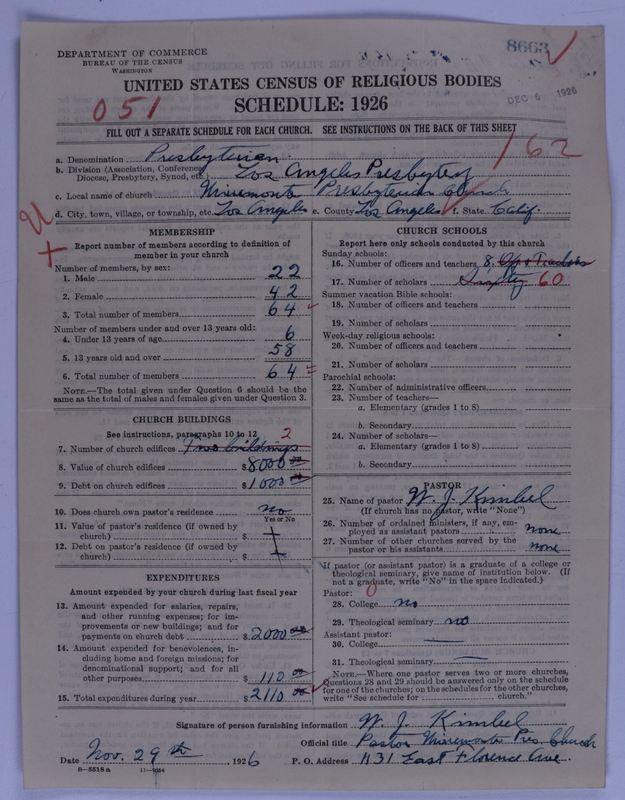 DEPARTMENT OF COMMERCE
BUREAU OF THE CENSUS
WASHINGTON
8663
UNITED STATES CENSUS OF RELIGIOUS BODIES
SCHEDULE: 1926
051
DEC 6 1926
FILL OUT A SEPARATE SCHEDULE FOR EACH CHURCH. SEE INSTRUCTIONS ON THE BACK OF THIS SHEET
162
a. Denomination Presbyterian
b. Division (Association, Conference, Diocese, Presbytery, Synod, etc.) Los Angeles Presbytery
c. Local name of church Miremonte Presbyterian Church
d. City, town, village, or township, etc. Los Angeles e. County Los Angeles f. State Calif.
MEMBERSHIP
Report number of members according to definition of
member in your church
Number of members, by sex:
1. Male 22
2. Female 42
3. Total number of members 64
Number of members under and over 13 years old:
4. Under 13 years of age 6
5. 13 years old and over 58
6. Total number of members 64
NOTE.—The total given under Question 6 should be
same as the total of males and females given under Question 3.
CHURCH BUILDINGS
See instructions, paragraphs 10 to 12
7. Number of church edifices Two buildings 2
8. Value of church edifices $ 8000 00
9. Debt on church edifices $ 1000 00
10. Does church own pastor's residence no
Yes or No
11. Value of pastor's residence (if owned by
church) $
12. Debt on pastor's residence (if owned by
church) $
EXPENDITURES
Amount expended by your church during last fiscal year
13. Amount expended for salaries, repairs,
and other running expenses; for im-
provements or new buildings; and for
payments on church debt $ 2000 00
14. Amount expended for benevolences, in-
cluding home and foreign missions; for
denominational support; and for all
other purposes $ 110 00
15. Total expenditures during year $ 2110 00
CHURCH SCHOOLS
Report here only schools conducted by this church
Sunday schools:
16. Number of officers and teachers 8. Of & Teachers
17. Number of scholars Sixty 60
Summer vacation Bible schools:
18. Number of officers and teachers
19. Number of scholars
Week-day religious schools:
20. Number of officers and teachers
21. Number of scholars
Parochial schools:
22. Number of administrative officers
23. Number of teachers—
a. Elementary (grades 1 to 8)
b. Secondary
24. Number of scholars—
a. Elementary (grades 1 to 8)
b. Secondary
PASTOR
25. Name of pastor W. J. Kimbel
(If church has no pastor, write "None")
26. Number of ordained ministers, if any, em-
ployed as assistant pastors none
27. Number of other churches served by the
pastor or his assistants none
If pastor (or assistant pastor) is a graduate of a college or
theological seminary, give name of institution below. (If
not a graduate, write "No" in the space indicated.)
Pastor:
28. College no
29. Theological seminary no
Assistant pastor:
30. College
31. Theological seminary
NOTE.—Where one pastor serves two or more churches,
Questions 28 and 29 should be answered only on the schedule
for one of the churches; on the schedules for the other churches,
write "See schedule for church."
Signature of person furnishing information W. J. Kimbel
Official title Pastor Miremonte Pres. Church
Date Nov. 29th, 1926 P. O. Address 1131 East Florence Ave.
8—5518a 11—9554